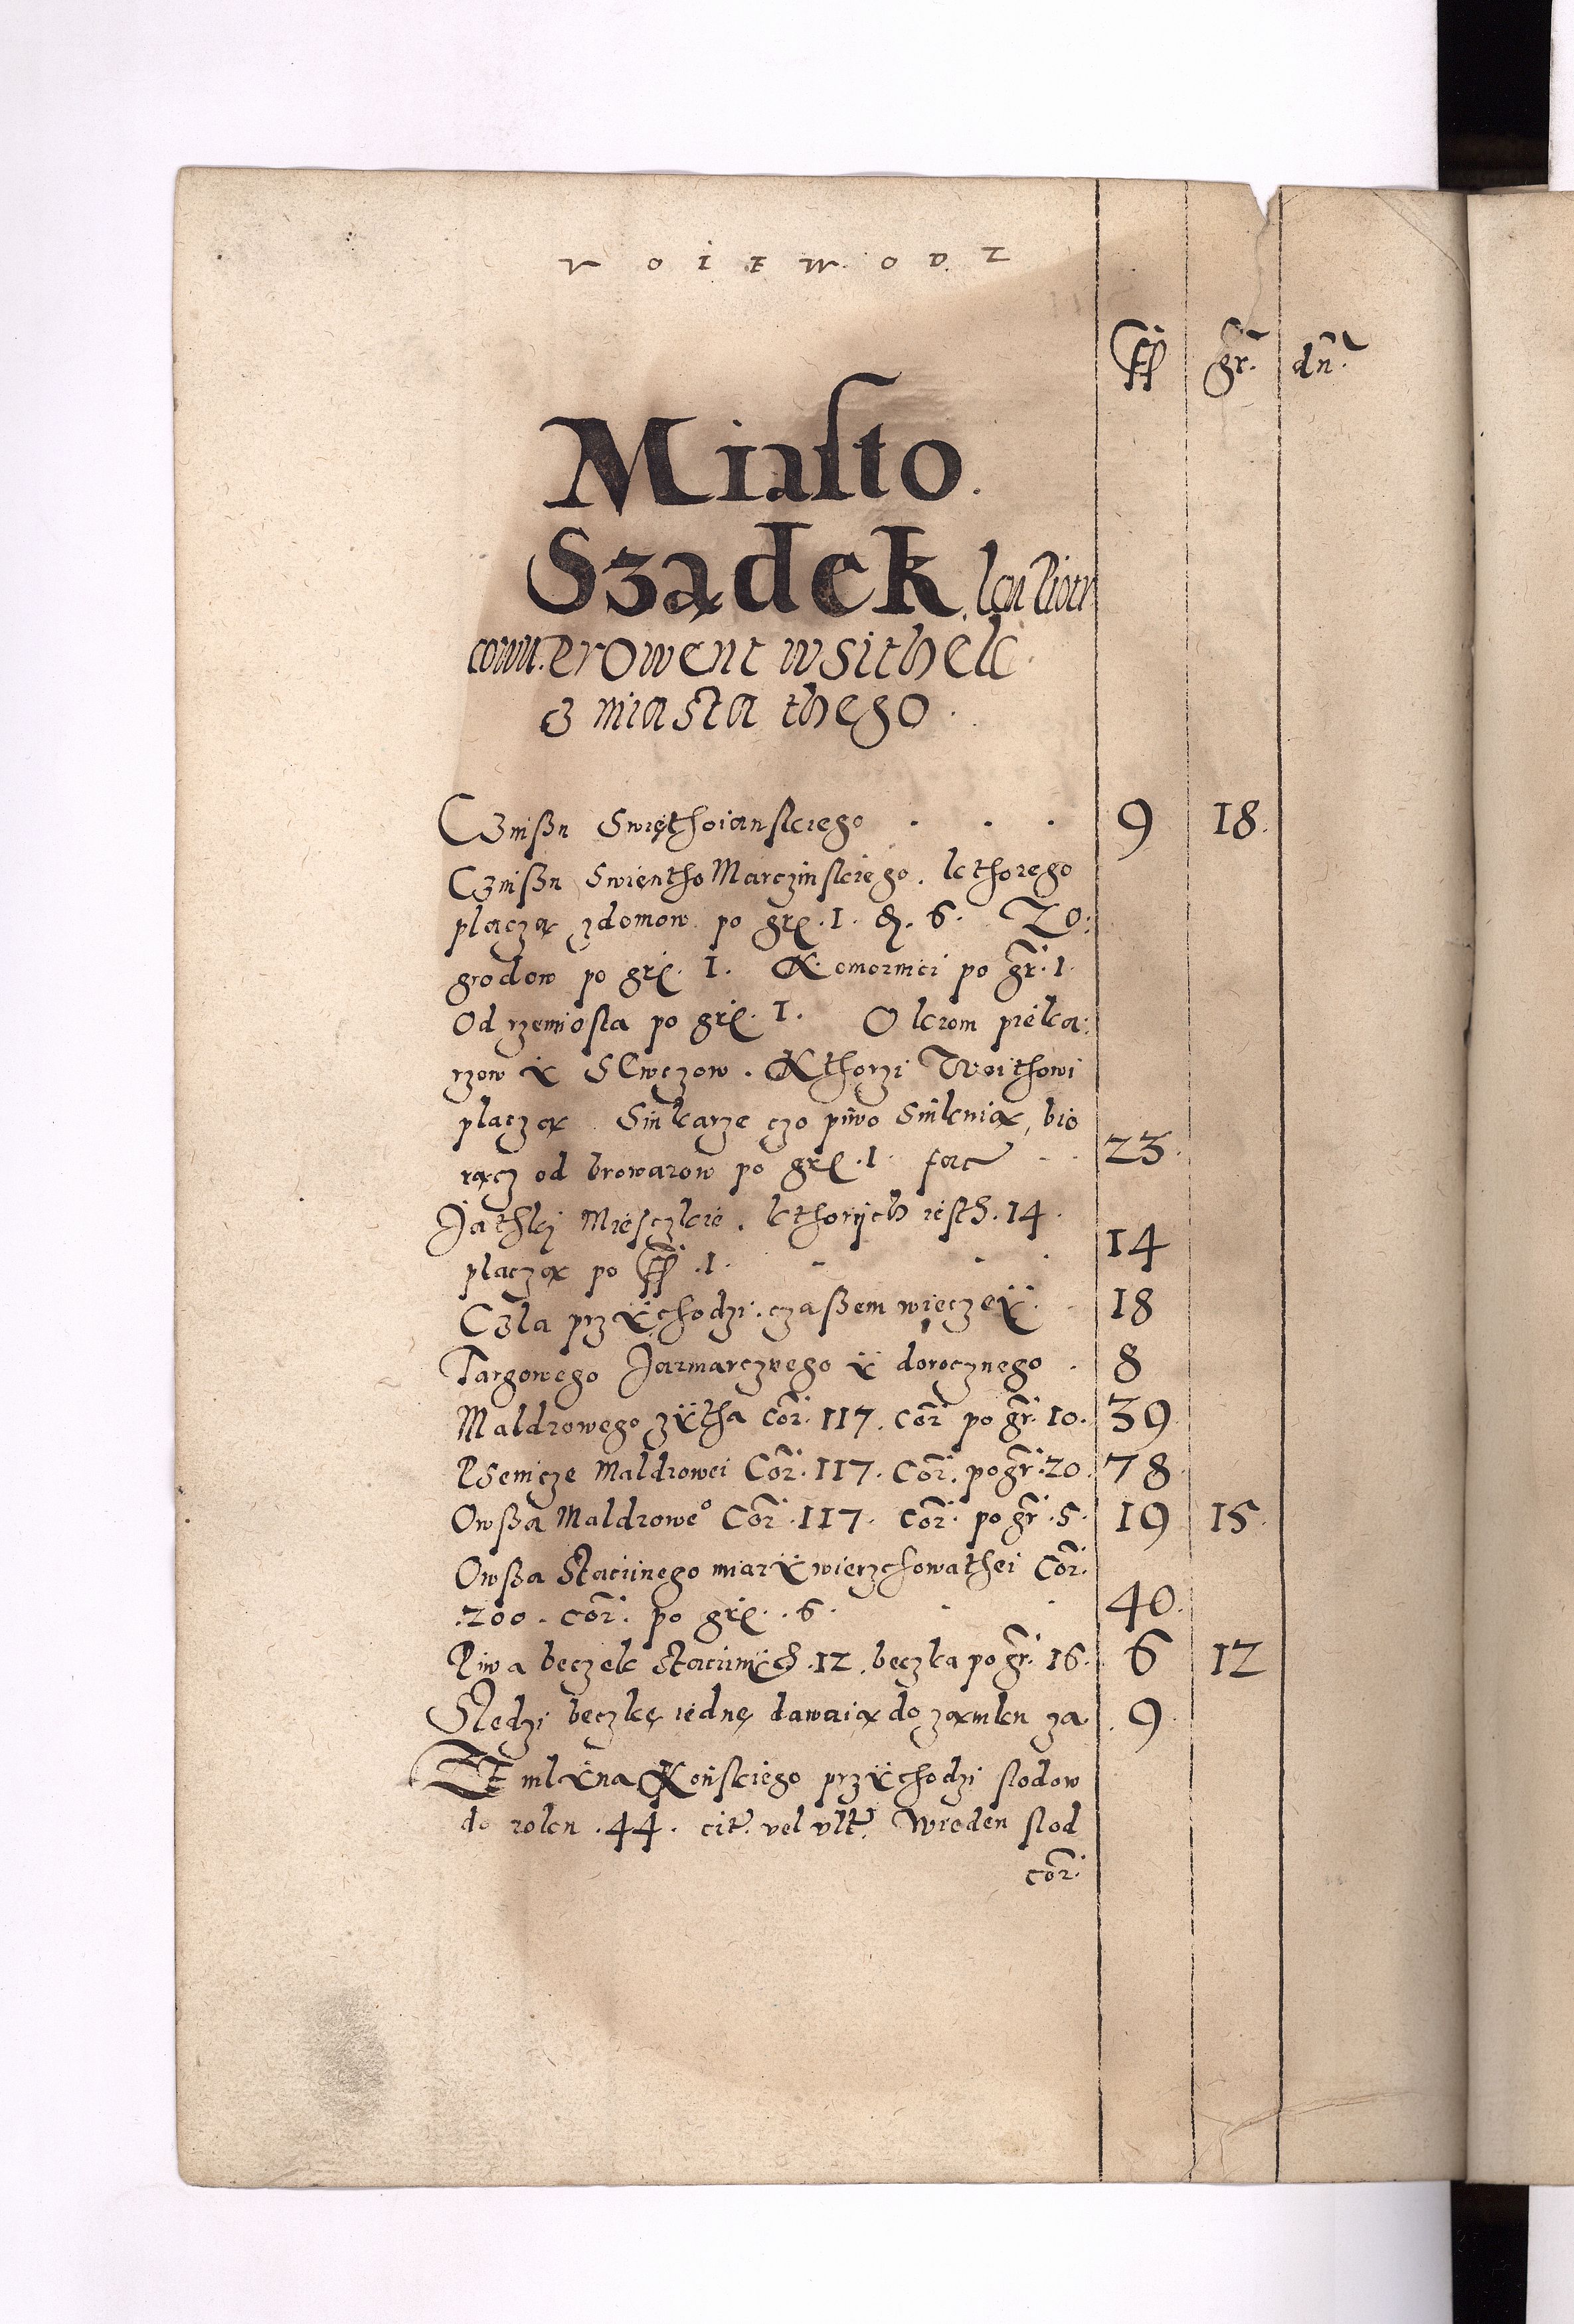 V O I E W O D Z
ff gr. dn.
Miasto.
Szadek. ku Piotr
cowu. Prowent wsithek
z miasta thego.
Czinßu Swięthoianskiego . . . 9 18.
Czinßu Swientho Marczinskiego. kthorego
płaczą zdomow po gr. 1. d. 6. Zo:
grodow po gr. 1. Komornici po gr. 1.
Od rzemiosła po gr. 1. Okrom pieka:
rzow y SEwczow. Kthorzi Woithowi
płaczą. Sinkarze czo piwo Sinkuią, bio
rącz od browarow po gr. 1. fac 23.
Jathki Miesczkie. kthorych iesth. 14.
płaczą po ff. 1. 14
Czła przychodzi. czaßem więczey. 18
Targowego Jarmarcznego y dorocznego . 8
Maldrowego zytha Cor. 117. cor. po gr. 10. 39.
PSenicze Maldrowei Cor. 117. Cor. po gr. 20. 78.
Owßa Maldrowe° Cor. 117. Cor. po gr. 5. 19 15.
Owßa Staciinego miary wierzchowathei Cor.
200. cor. po gr. 6. 40.
Piwa beczek Staciinych. 12. beczka po gr. 16. 6 12
Sledzi beczkę iednę dawaią do zamku za 9.
Ze mlyna Końskiego przychodzi słodow
do roku. 44. cit. vel ult. Wieden słod
cor.